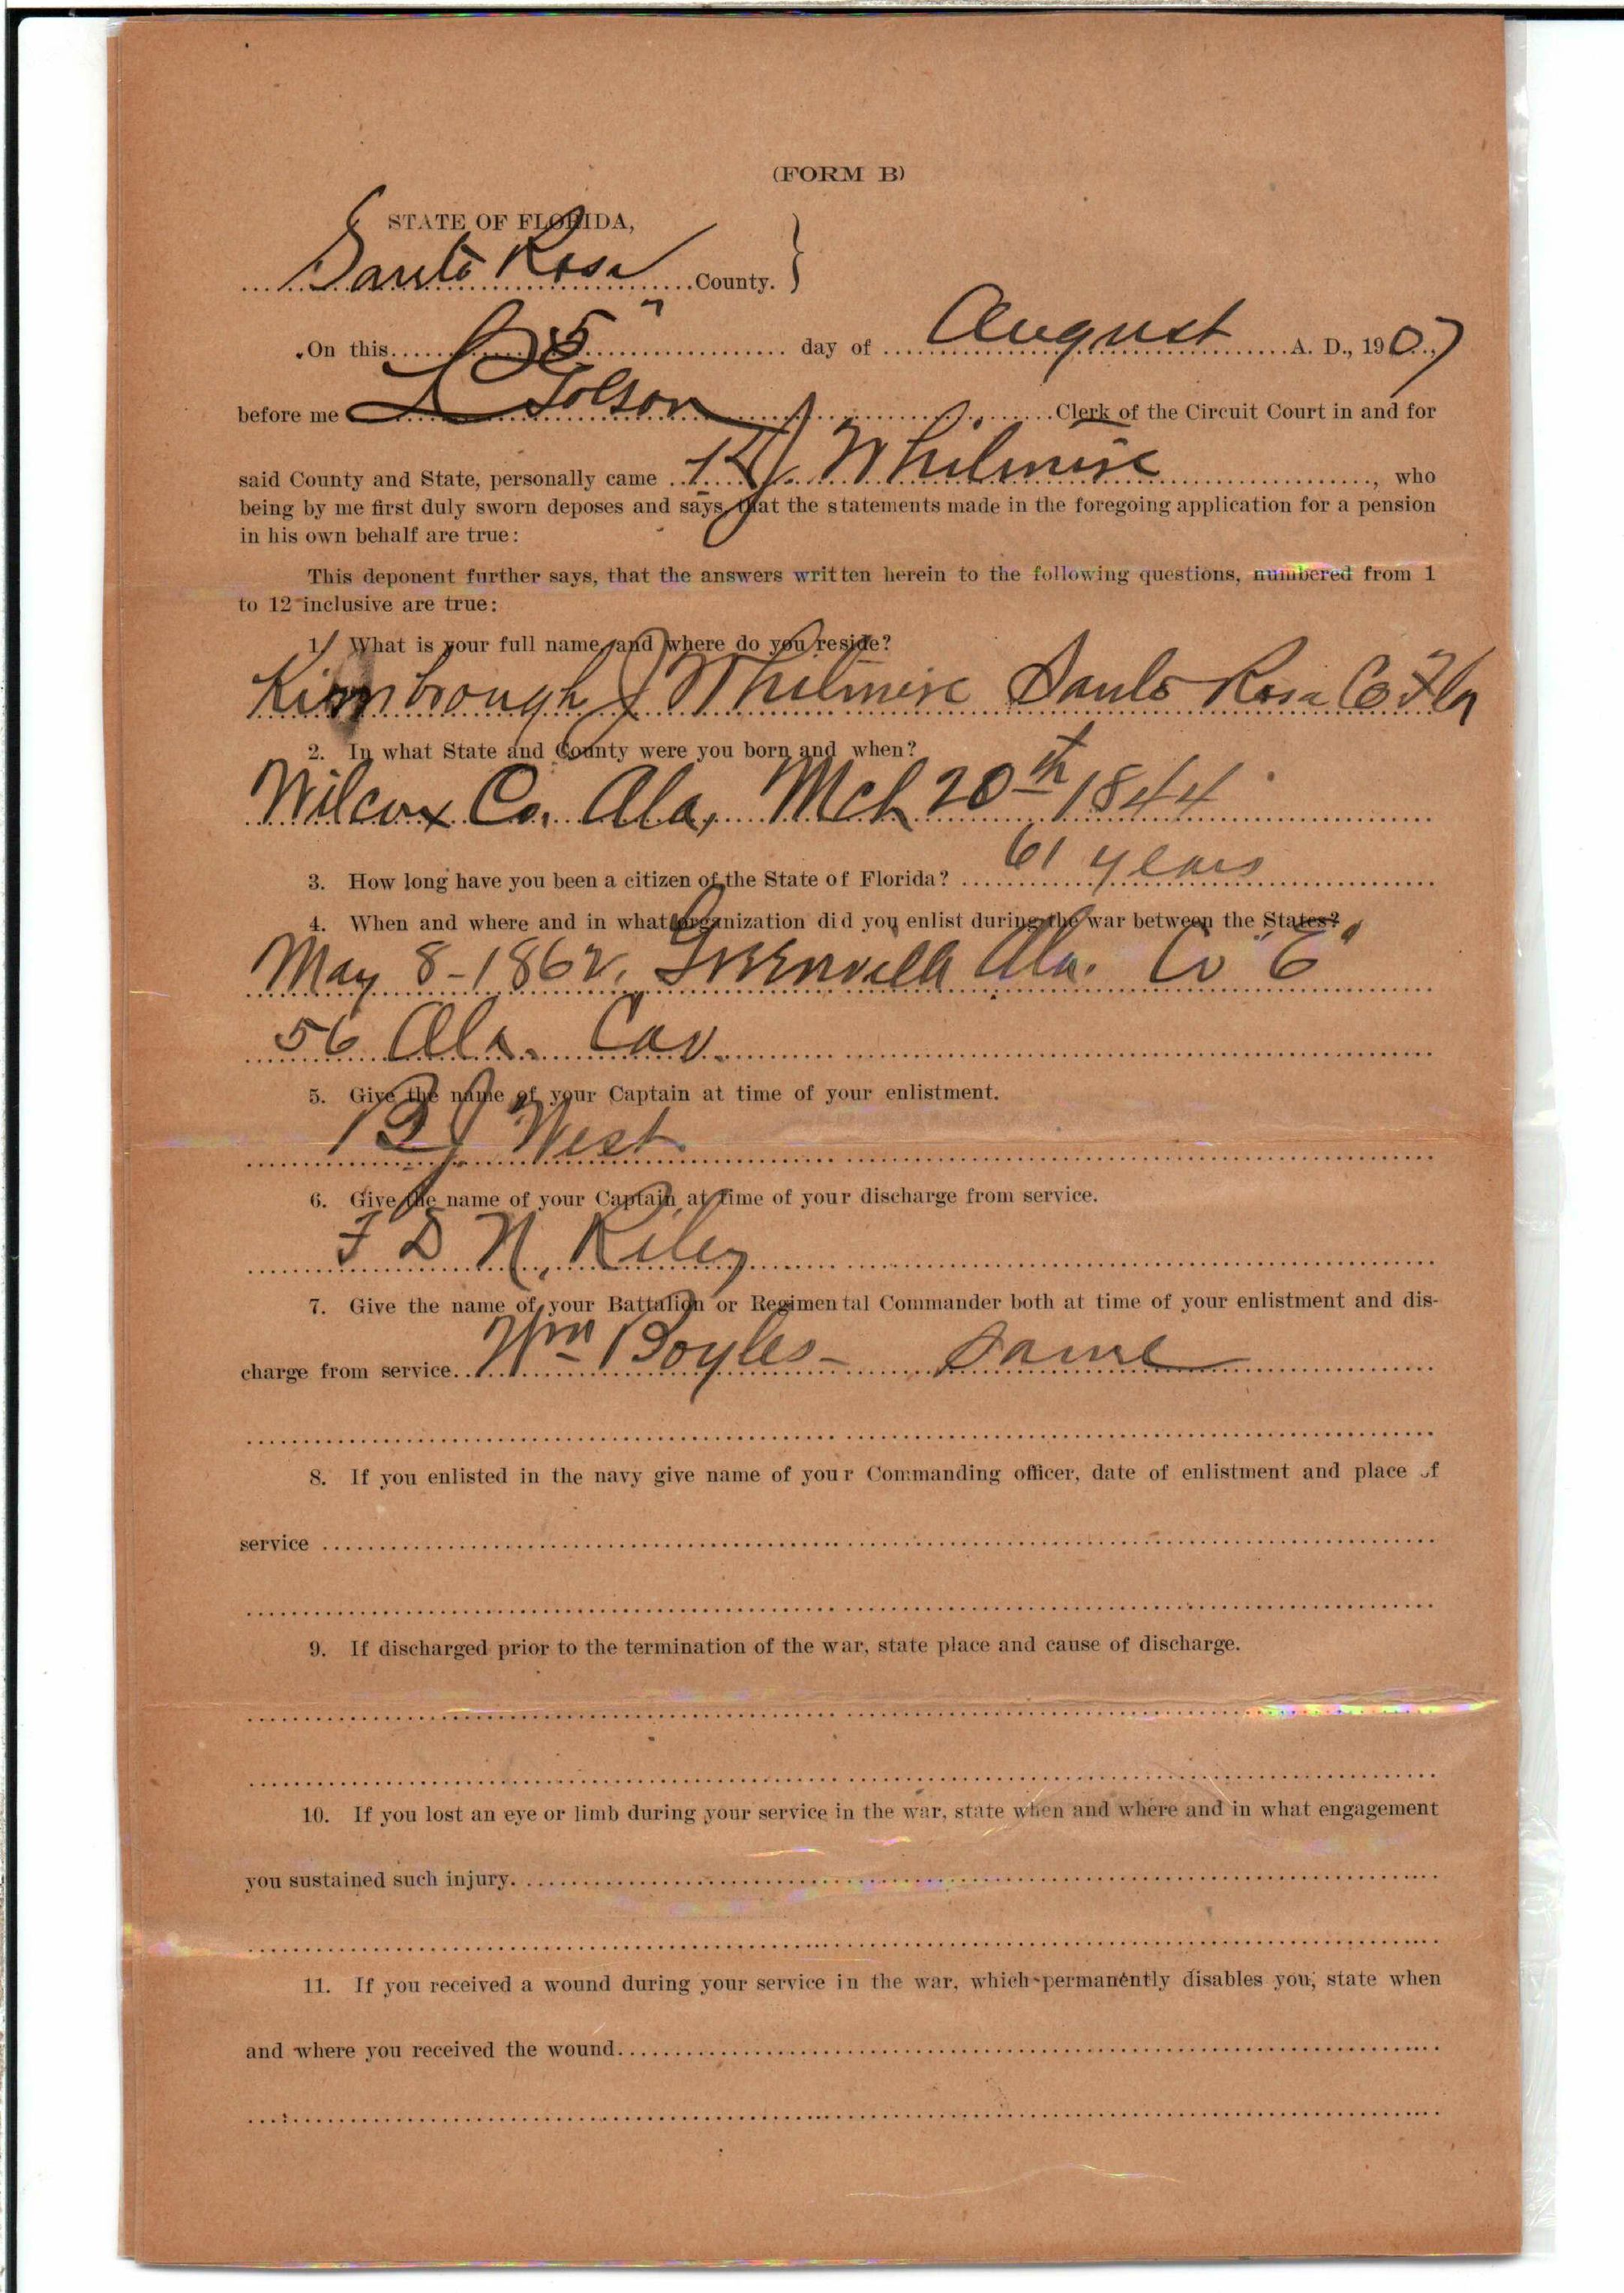 (FORM B)
STATE OF FLORIDA,
Santa Rosa County.
On this 5 day of August A. D., 1907,
before me Tolson Clerk of the Circuit Court in and for
said County and State, personally came K J. Whitmire, who
being by me first duly sworn deposes and says, that the statements made in the foregoing application for a pension
in his own behalf are true:
This deponent further says, that the answers written herein to the following questions, numbered from 1
to 12 inclusive are true:
1. What is your full name, and where do you reside?
Kimbrough J Whitmire Santa Rosa Co Fla
2. In what State and County were you born and when?
Wilcox Co. Ala, Mch 20th 1844
3. How long have you been a citizen of the State of Florida? 61 years
4. When and where and in what organization did you enlist during the war between the States?
May 8-1862, Greenvill Ala. Co "E"
56 Ala. Cav.
5. Give the name of your Captain at time of your enlistment.
J West
6. Give the name of your Captain at time of your discharge from service.
F D N. Riley
7. Give the name of your Battalion or Regimental Commander both at time of your enlistment and dis-
charge from service. Wm Boyles - Same
8. If you enlisted in the navy give name of your Commanding officer, date of enlistment and place of
service
9. If discharged prior to the termination of the war, state place and cause of discharge.
10. If you lost an eye or limb during your service in the war, state when and where and in what engagement
you sustained such injury.
11. If you received a wound during your service in the war, which permanently disables you, state when
and where you received the wound.